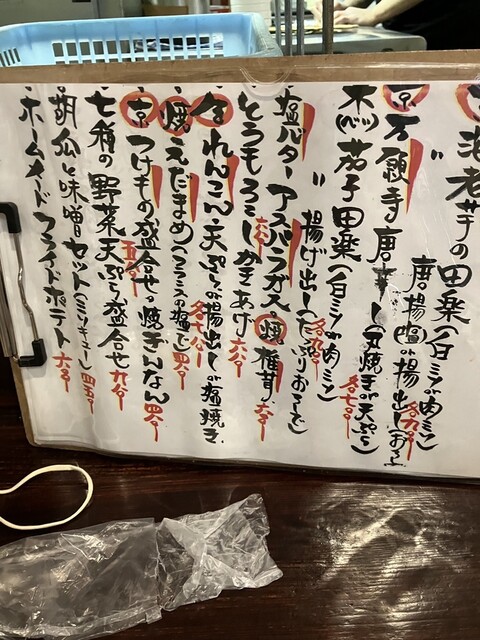 海老芋の田楽（白ミソか肉ミソ）
〃 唐揚（塩）か揚出しおろし 各九〇
京 万願寺唐辛し（丸焼きか天ぷら） 各七〇
米ナス
茄子田楽（白ミソか肉ミソ） 各九〇
〃 揚げ出し（たっぷりおろしで）
塩バターアスパラガス 焼椎茸 六〇
とうもろこしかきあげ 六八〇
れんこん天ぷらか揚出しか塩焼き 各六八〇
焼えだまめ（の塩で）四八〇
京つけもの盛合せ 五八〇 焼ぎんなん 四八〇
七種の野菜天ぷら盛合せ 九八〇
胡瓜と味噌セット（ミソキュー） 四五〇
ホームメードフライドポテト 六八〇